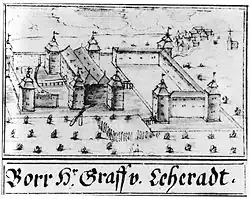 Borr Hr Graff v. Leheradt.